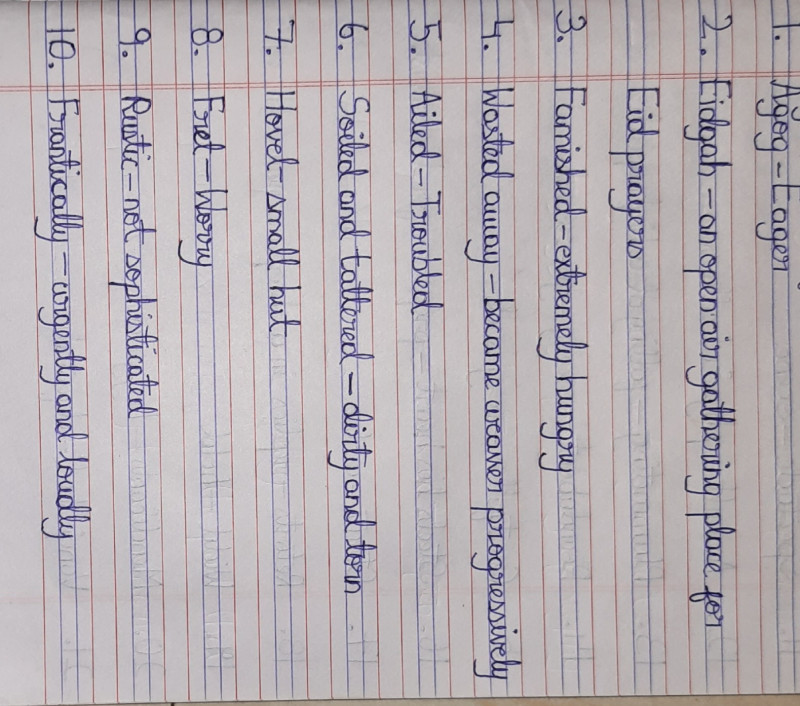 1. Agog - Eager
2. Eidgah - an open air gathering place for
Eid prayers
3. Famished - extremely hungry
4. Wasted away - became weaker progressively
5. Ailed - Troubled
6. Soiled and tattered - dirty and torn
7. Hovel - small hut
8. Fret - Worry
9. Rustic - not sophisticated
10. Frantically - urgently and loudly